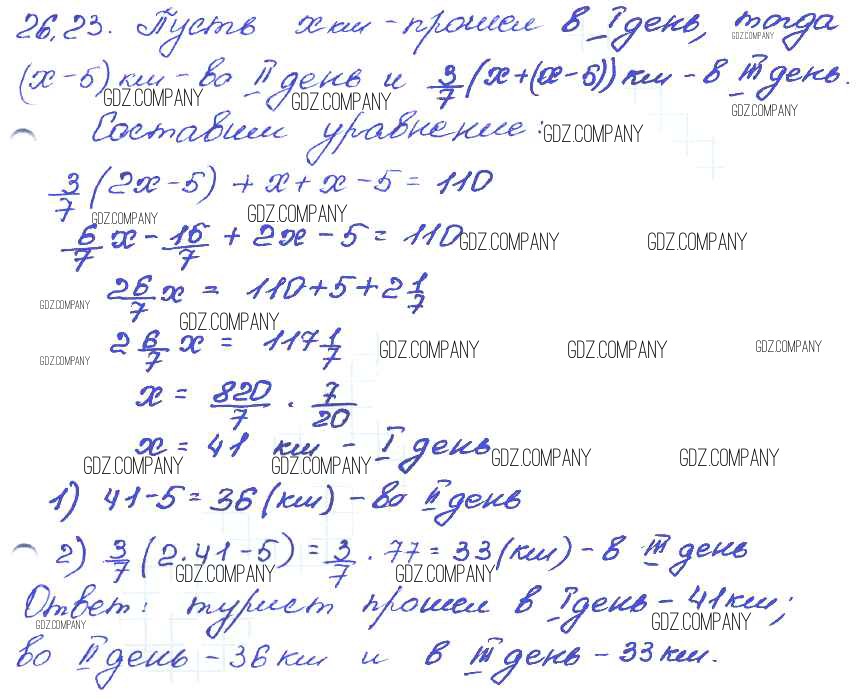 26.23. Пусть x км - прошел в I день, тогда
GDZ.COMPANY
(x - 5) км - во II день и 3/7 (x + (x - 5)) км - в III день.
GDZ.COMPANY GDZ.COMPANY GDZ.COMPANY
Составим уравнение:
GDZ.COMPANY
3/7 (2x - 5) + x + x - 5 = 110
GDZ.COMPANY GDZ.COMPANY
6/7 x - 15/7 + 2x - 5 = 110
GDZ.COMPANY GDZ.COMPANY
2 6/7 x = 110 + 5 + 2 1/7
GDZ.COMPANY GDZ.COMPANY
2 6/7 x = 117 1/7
GDZ.COMPANY GDZ.COMPANY GDZ.COMPANY GDZ.COMPANY
x = 820/7 · 7/20
x = 41 км - I день
GDZ.COMPANY GDZ.COMPANY GDZ.COMPANY GDZ.COMPANY
1) 41 - 5 = 36 (км) - во II день
2) 3/7 (2 · 41 - 5) = 3/7 · 77 = 33 (км) - в III день
GDZ.COMPANY GDZ.COMPANY
Ответ: турист прошел в I день - 41 км;
GDZ.COMPANY GDZ.COMPANY
во II день - 36 км и в III день - 33 км.